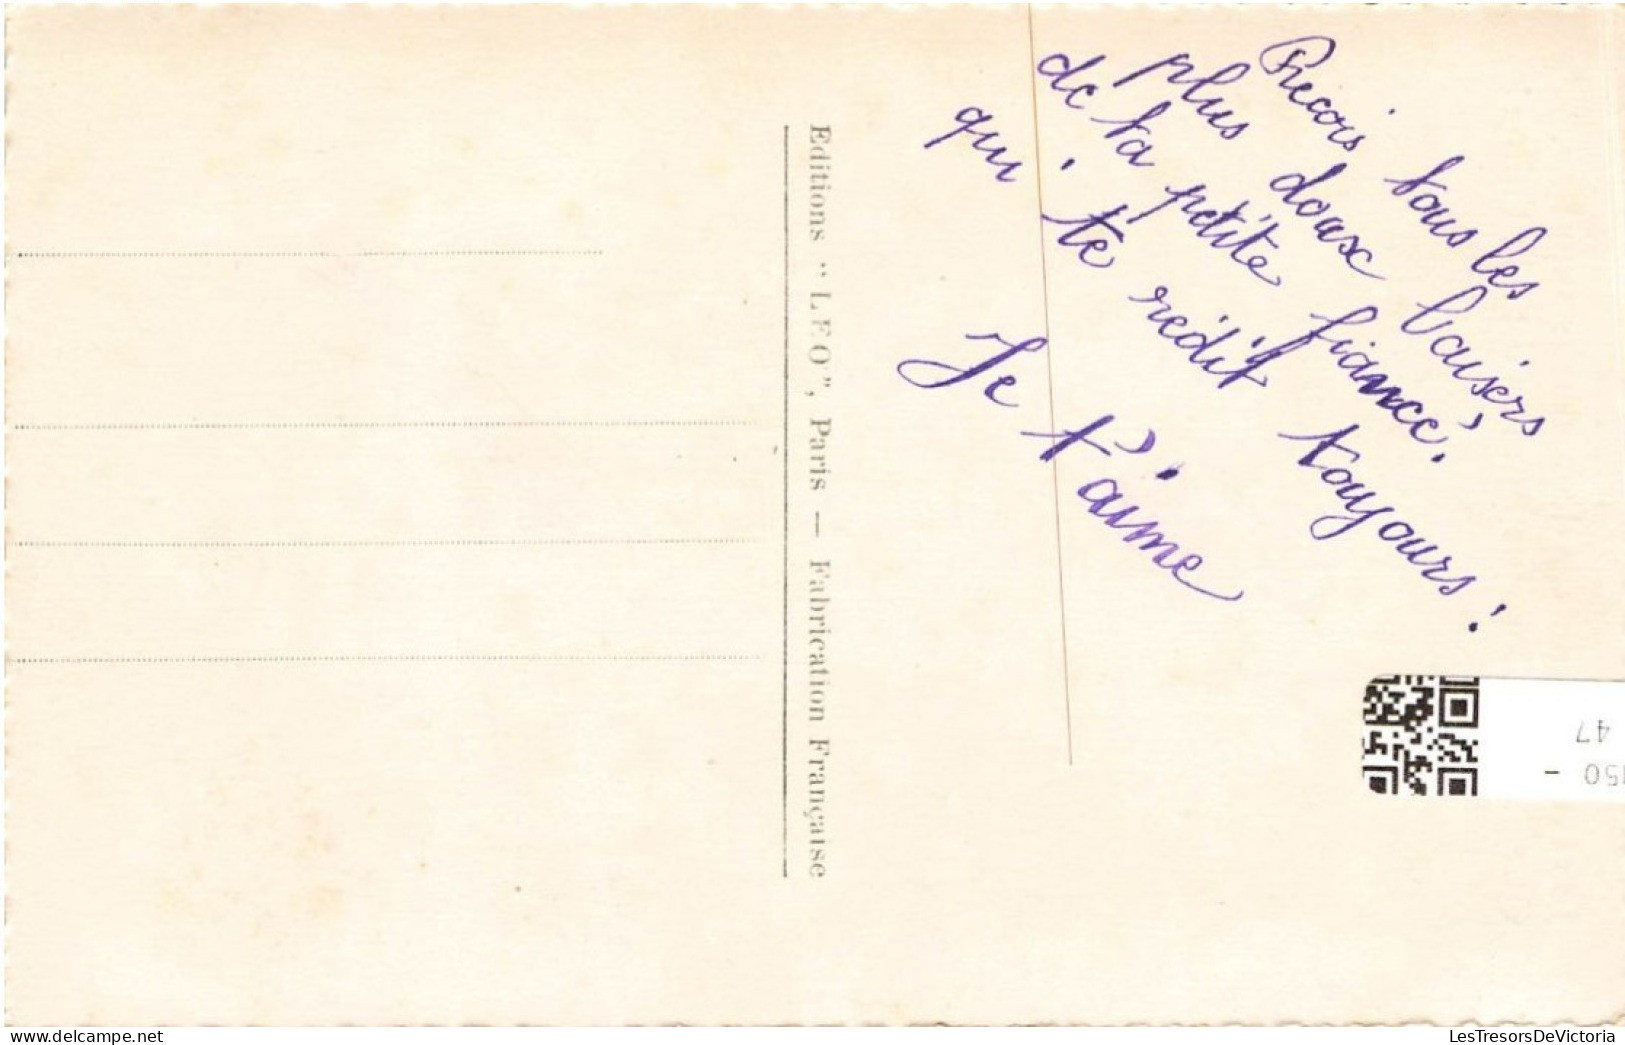 Reçois tous les
plus doux baisers
de ta petite fiancée,
qui te redit toujours !
Je t'aime
Editions "LEO", Paris — Fabrication Française
47
050 -
www.delcampe.net
LesTresorsDeVictoria